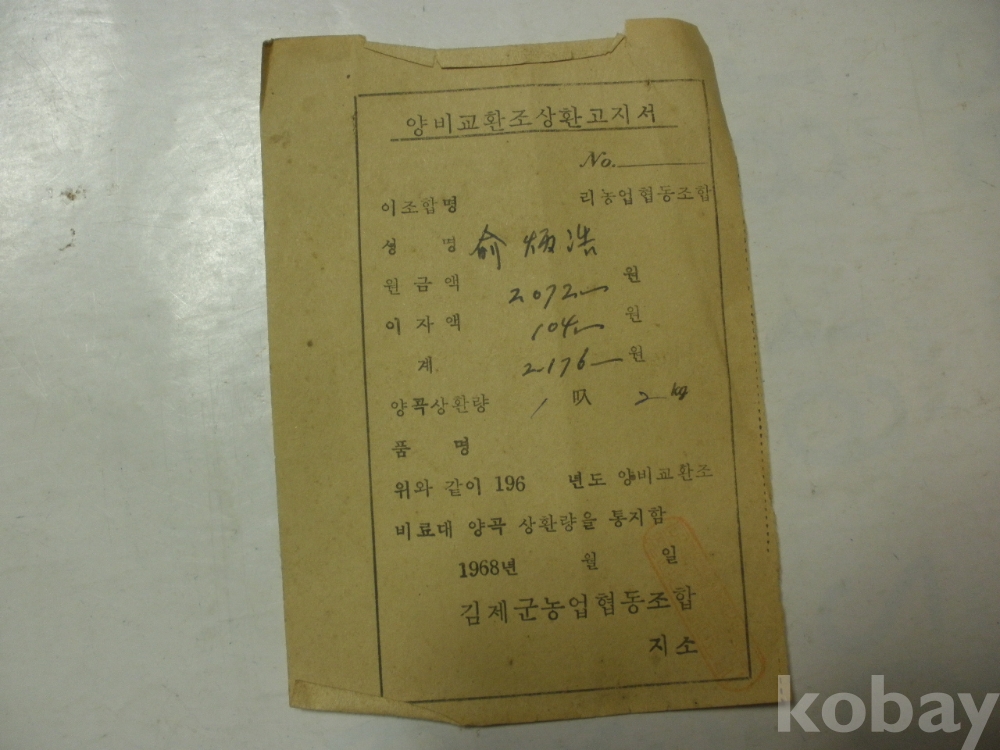 양비교환조상환고지서
No.
이조합명 리농업협동조합
성 명 俞炳浩
원금액 2,072 원
이자액 104 원
계 2,176 원
양곡상환량 1 叺 2 kg
품 명
위와 같이 196 년도 양비교환조
비료대 양곡 상환량을 통지함
1968년 월 일
김제군농업협동조합
지소
kobay